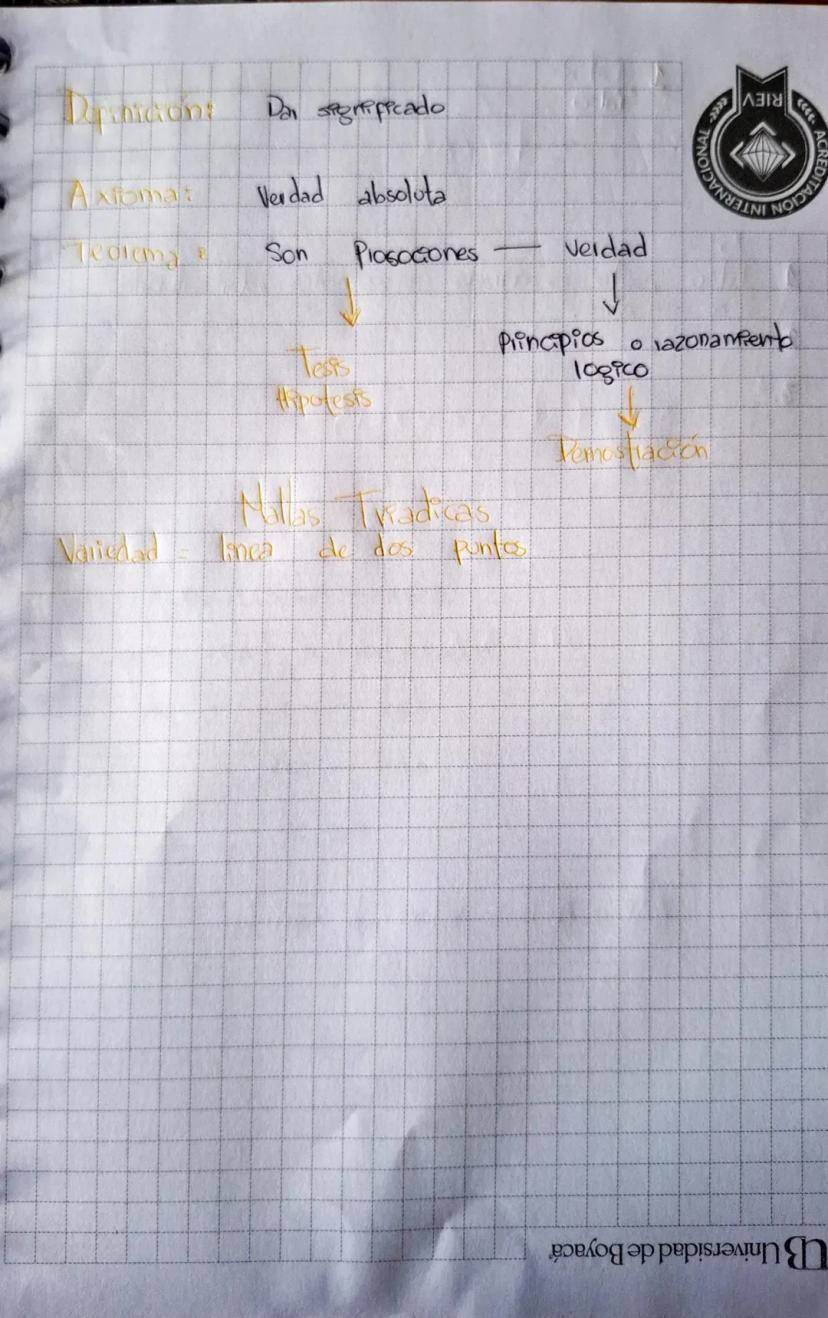 RIEV
ACREDITACIÓN INTERNACIONAL
Definición: Dar significado
Axioma: Verdad absoluta
Teorema: Son Piososiones — Verdad
Tesis
Hipotesis
Principios o razonamiento
logico
Demostración
Mallas Triadicas
Variedad = linea de dos puntos
UB Universidad de Boyacá